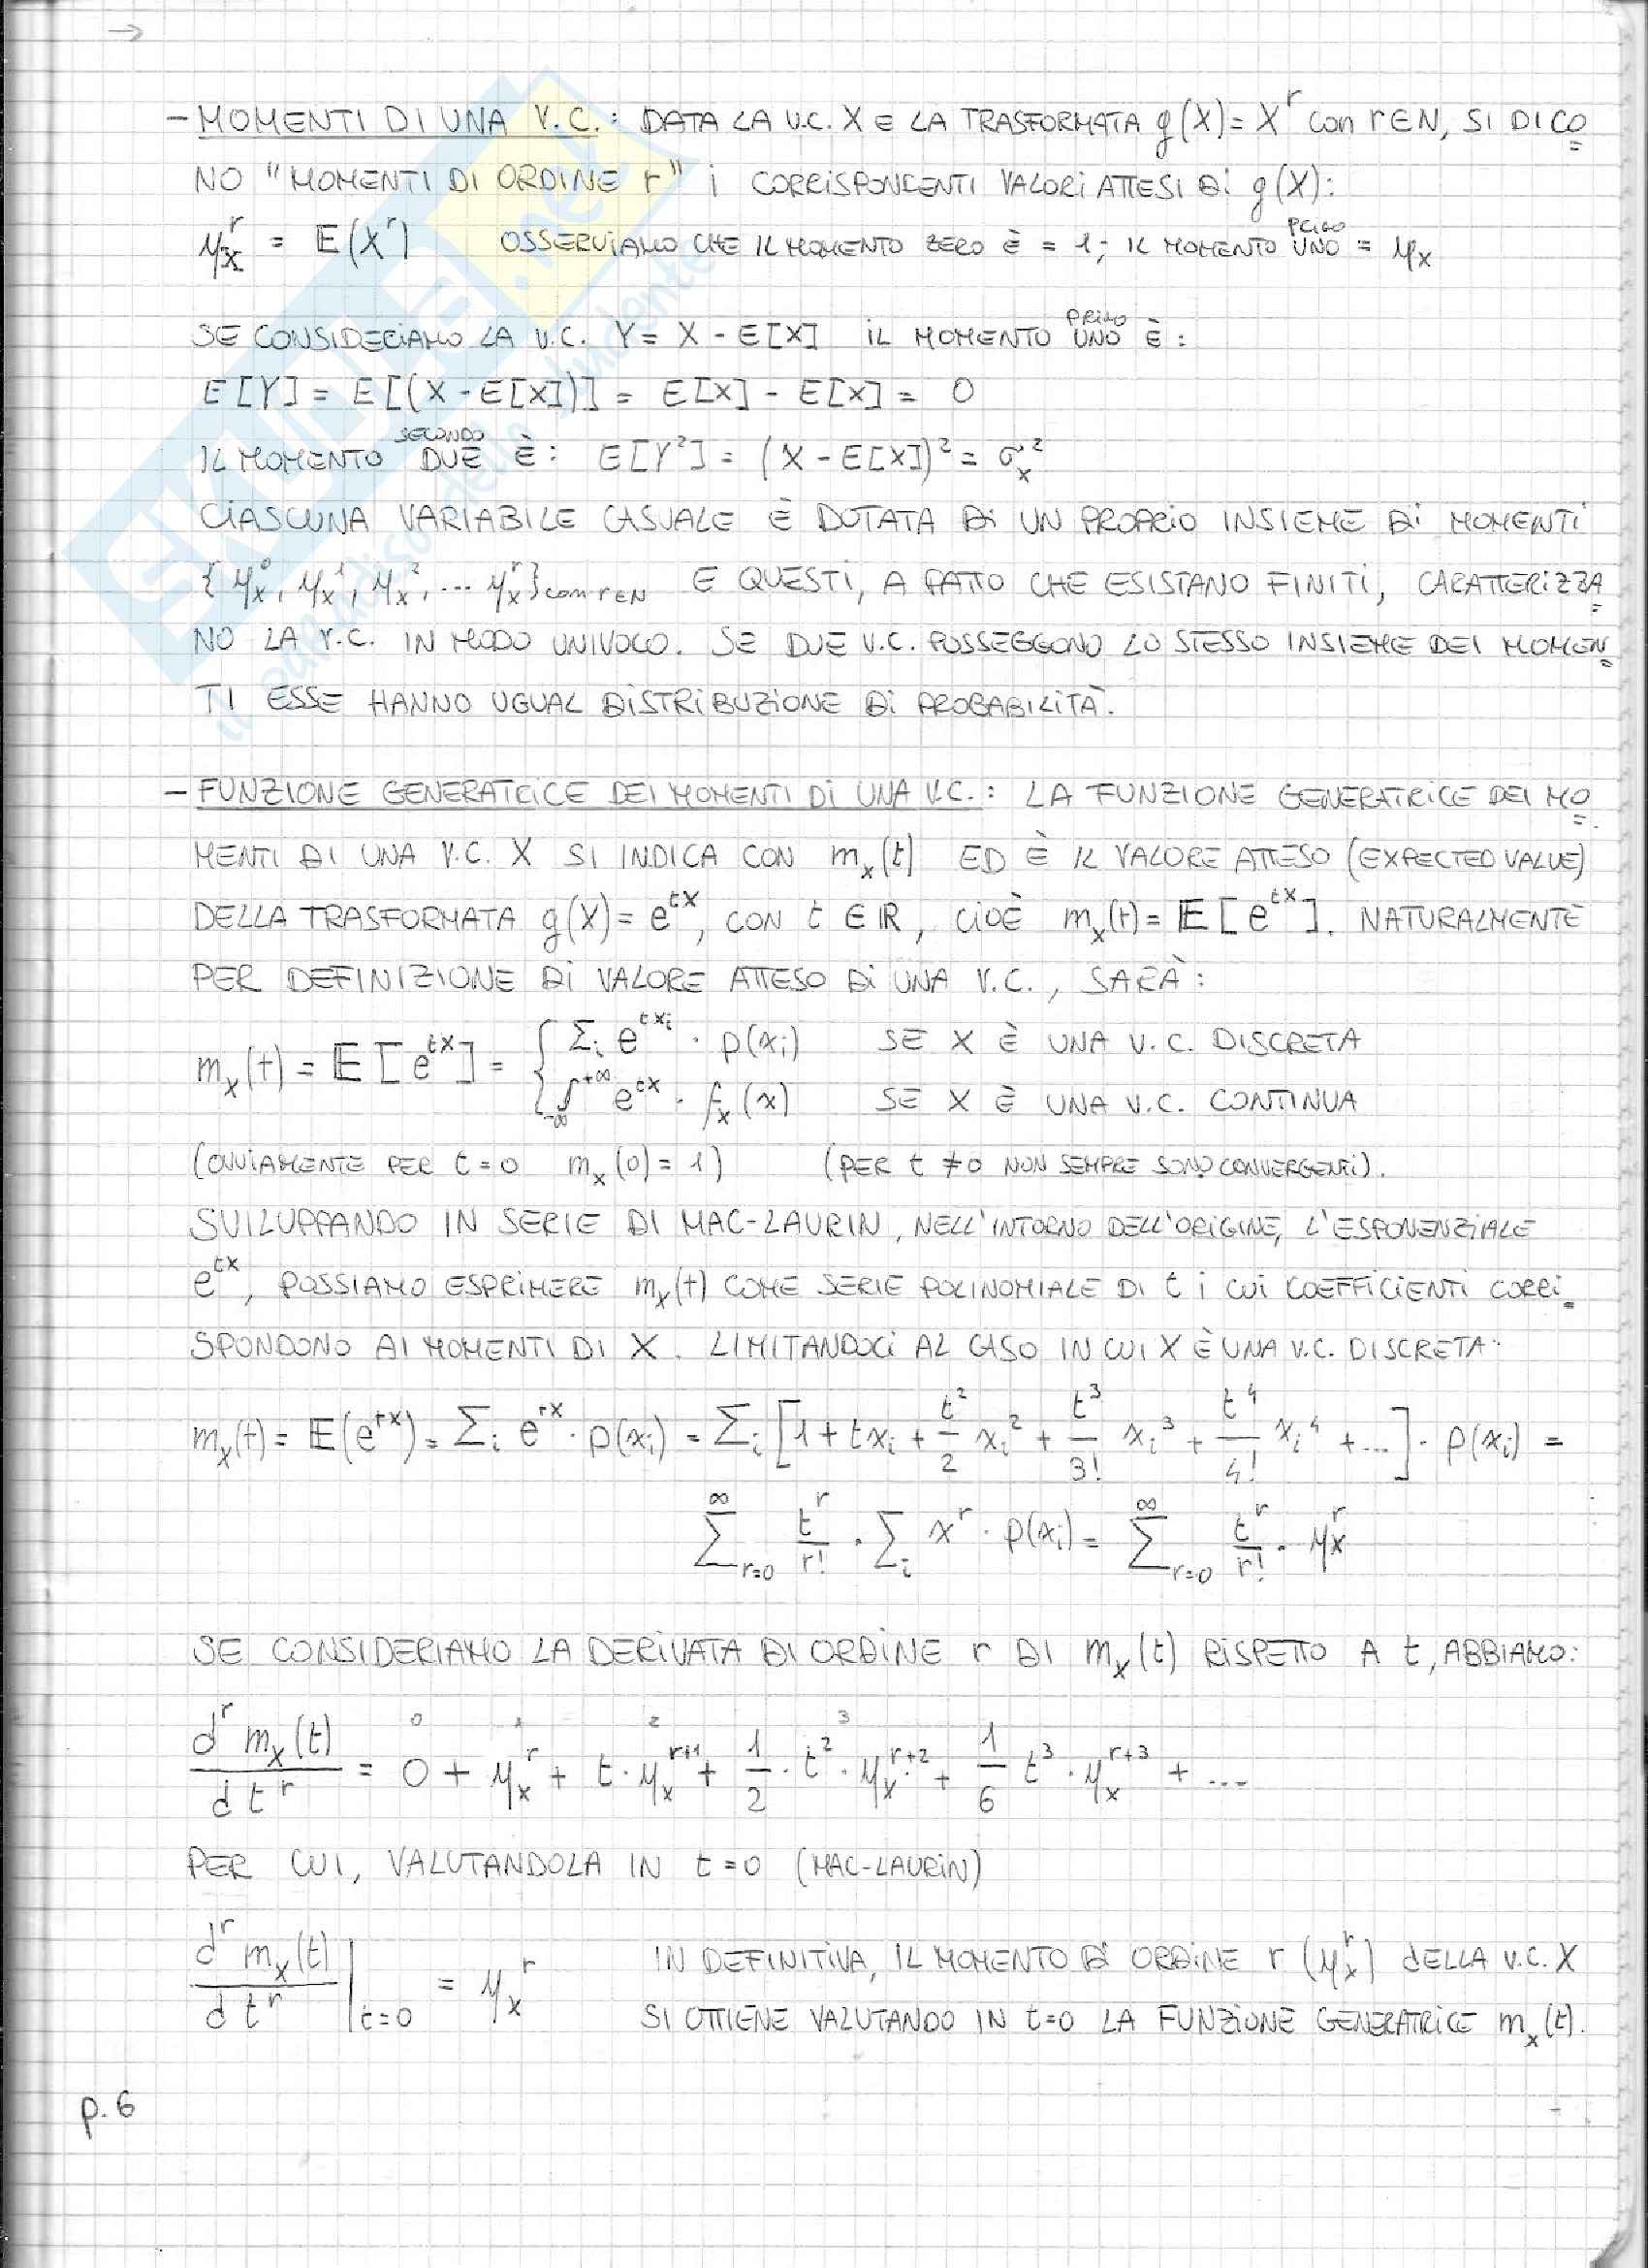 →
- MOMENTI DI UNA V.C.: DATA LA V.C. X E LA TRASFORMATA g(X) = X^r con r∈N, SI DICO
NO "MOMENTI DI ORDINE r" i CORRISPONDENTI VALORI ATTESI Di g(X):
μ_x^r = E(X^r) OSSERVIAMO CHE IL MOMENTO ZERO È = 1; IL MOMENTO UNO PRIMO = μ_x
SE CONSIDERIAMO LA V.C. Y = X - E[X] IL MOMENTO UNO PRIMO È:
E[Y] = E[(X - E[X])] = E[X] - E[X] = 0
IL MOMENTO DUE SECONDO È: E[Y²] = (X - E[X])² = σ_x²
CIASCUNA VARIABILE CASUALE È DOTATA Di UN PROPRIO INSIEME Di MOMENTi
{μ_x^0, μ_x^1, μ_x^2, ... μ_x^r} con r∈N E QUESTI, A PATTO CHE ESISTANO FINITI, CARATTERIZZA
NO LA V.C. IN MODO UNIVOCO. SE DUE V.C. POSSEGGONO LO STESSO INSIEME DEI MOMEN
TI ESSE HANNO UGUAL DISTRIBUZIONE Di PROBABILITÀ.
- FUNZIONE GENERATRICE DEI MOMENTI Di UNA V.C.: LA FUNZIONE GENERATRICE DEI MO
MENTI DI UNA V.C. X SI INDICA CON m_x(t) ED È IL VALORE ATTESO (EXPECTED VALUE)
DELLA TRASFORMATA g(X) = e^{tX}, CON t ∈ ℝ, CIOÈ m_x(t) = E[e^{tX}]. NATURALMENTE
PER DEFINIZIONE Di VALORE ATTESO Di UNA V.C., SARÀ:
m_x(t) = E[e^{tX}] = { Σ_i e^{tx_i} · p(x_i) SE X È UNA V.C. DISCRETA
∫_{-∞}^{+∞} e^{tx} · f_x(x) SE X È UNA V.C. CONTINUA
(OVVIAMENTE PER t = 0 m_x(0) = 1) (PER t ≠ 0 NON SEMPRE SONO CONVERGENTI).
SVILUPPANDO IN SERIE DI MAC-LAURIN, NELL'INTORNO DELL'ORIGINE, L'ESPONENZIALE
e^{tx}, POSSIAMO ESPRIMERE m_x(t) COME SERIE POLINOMIALE DI t i CUI COEFFICIENTI CORRI
SPONDONO AI MOMENTI DI X. LIMITANDOCI AL CASO IN CUI X È UNA V.C. DISCRETA:
m_x(t) = E(e^{tX}) = Σ_i e^{tx} · p(x_i) = Σ_i [1 + tx_i + t²/2 x_i² + t³/3! x_i³ + t⁴/4! x_i⁴ + ...] · p(x_i) =
Σ_{r=0}^∞ t^r/r! · Σ_i x^r · p(x_i) = Σ_{r=0}^∞ t^r/r! · μ_x^r
SE CONSIDERIAMO LA DERIVATA DI ORDINE r DI m_x(t) RISPETTO A t, ABBIAMO:
0 1 2 3
d^r m_x(t)/dt^r = 0 + μ_x^r + t · μ_x^{r+1} + 1/2 · t² · μ_x^{r+2} + 1/6 t³ · μ_x^{r+3} + ...
PER CUI, VALUTANDOLA IN t = 0 (MAC-LAURIN)
d^r m_x(t)/dt^r |_{t=0} = μ_x^r IN DEFINITIVA, IL MOMENTO Di ORDINE r (μ_x^r) dELLA V.C. X
SI OTTIENE VALUTANDO IN t=0 LA FUNZIONE GENERATRICE m_x(t).
p. 6
SKUOLA.net
il paradiso dello studente